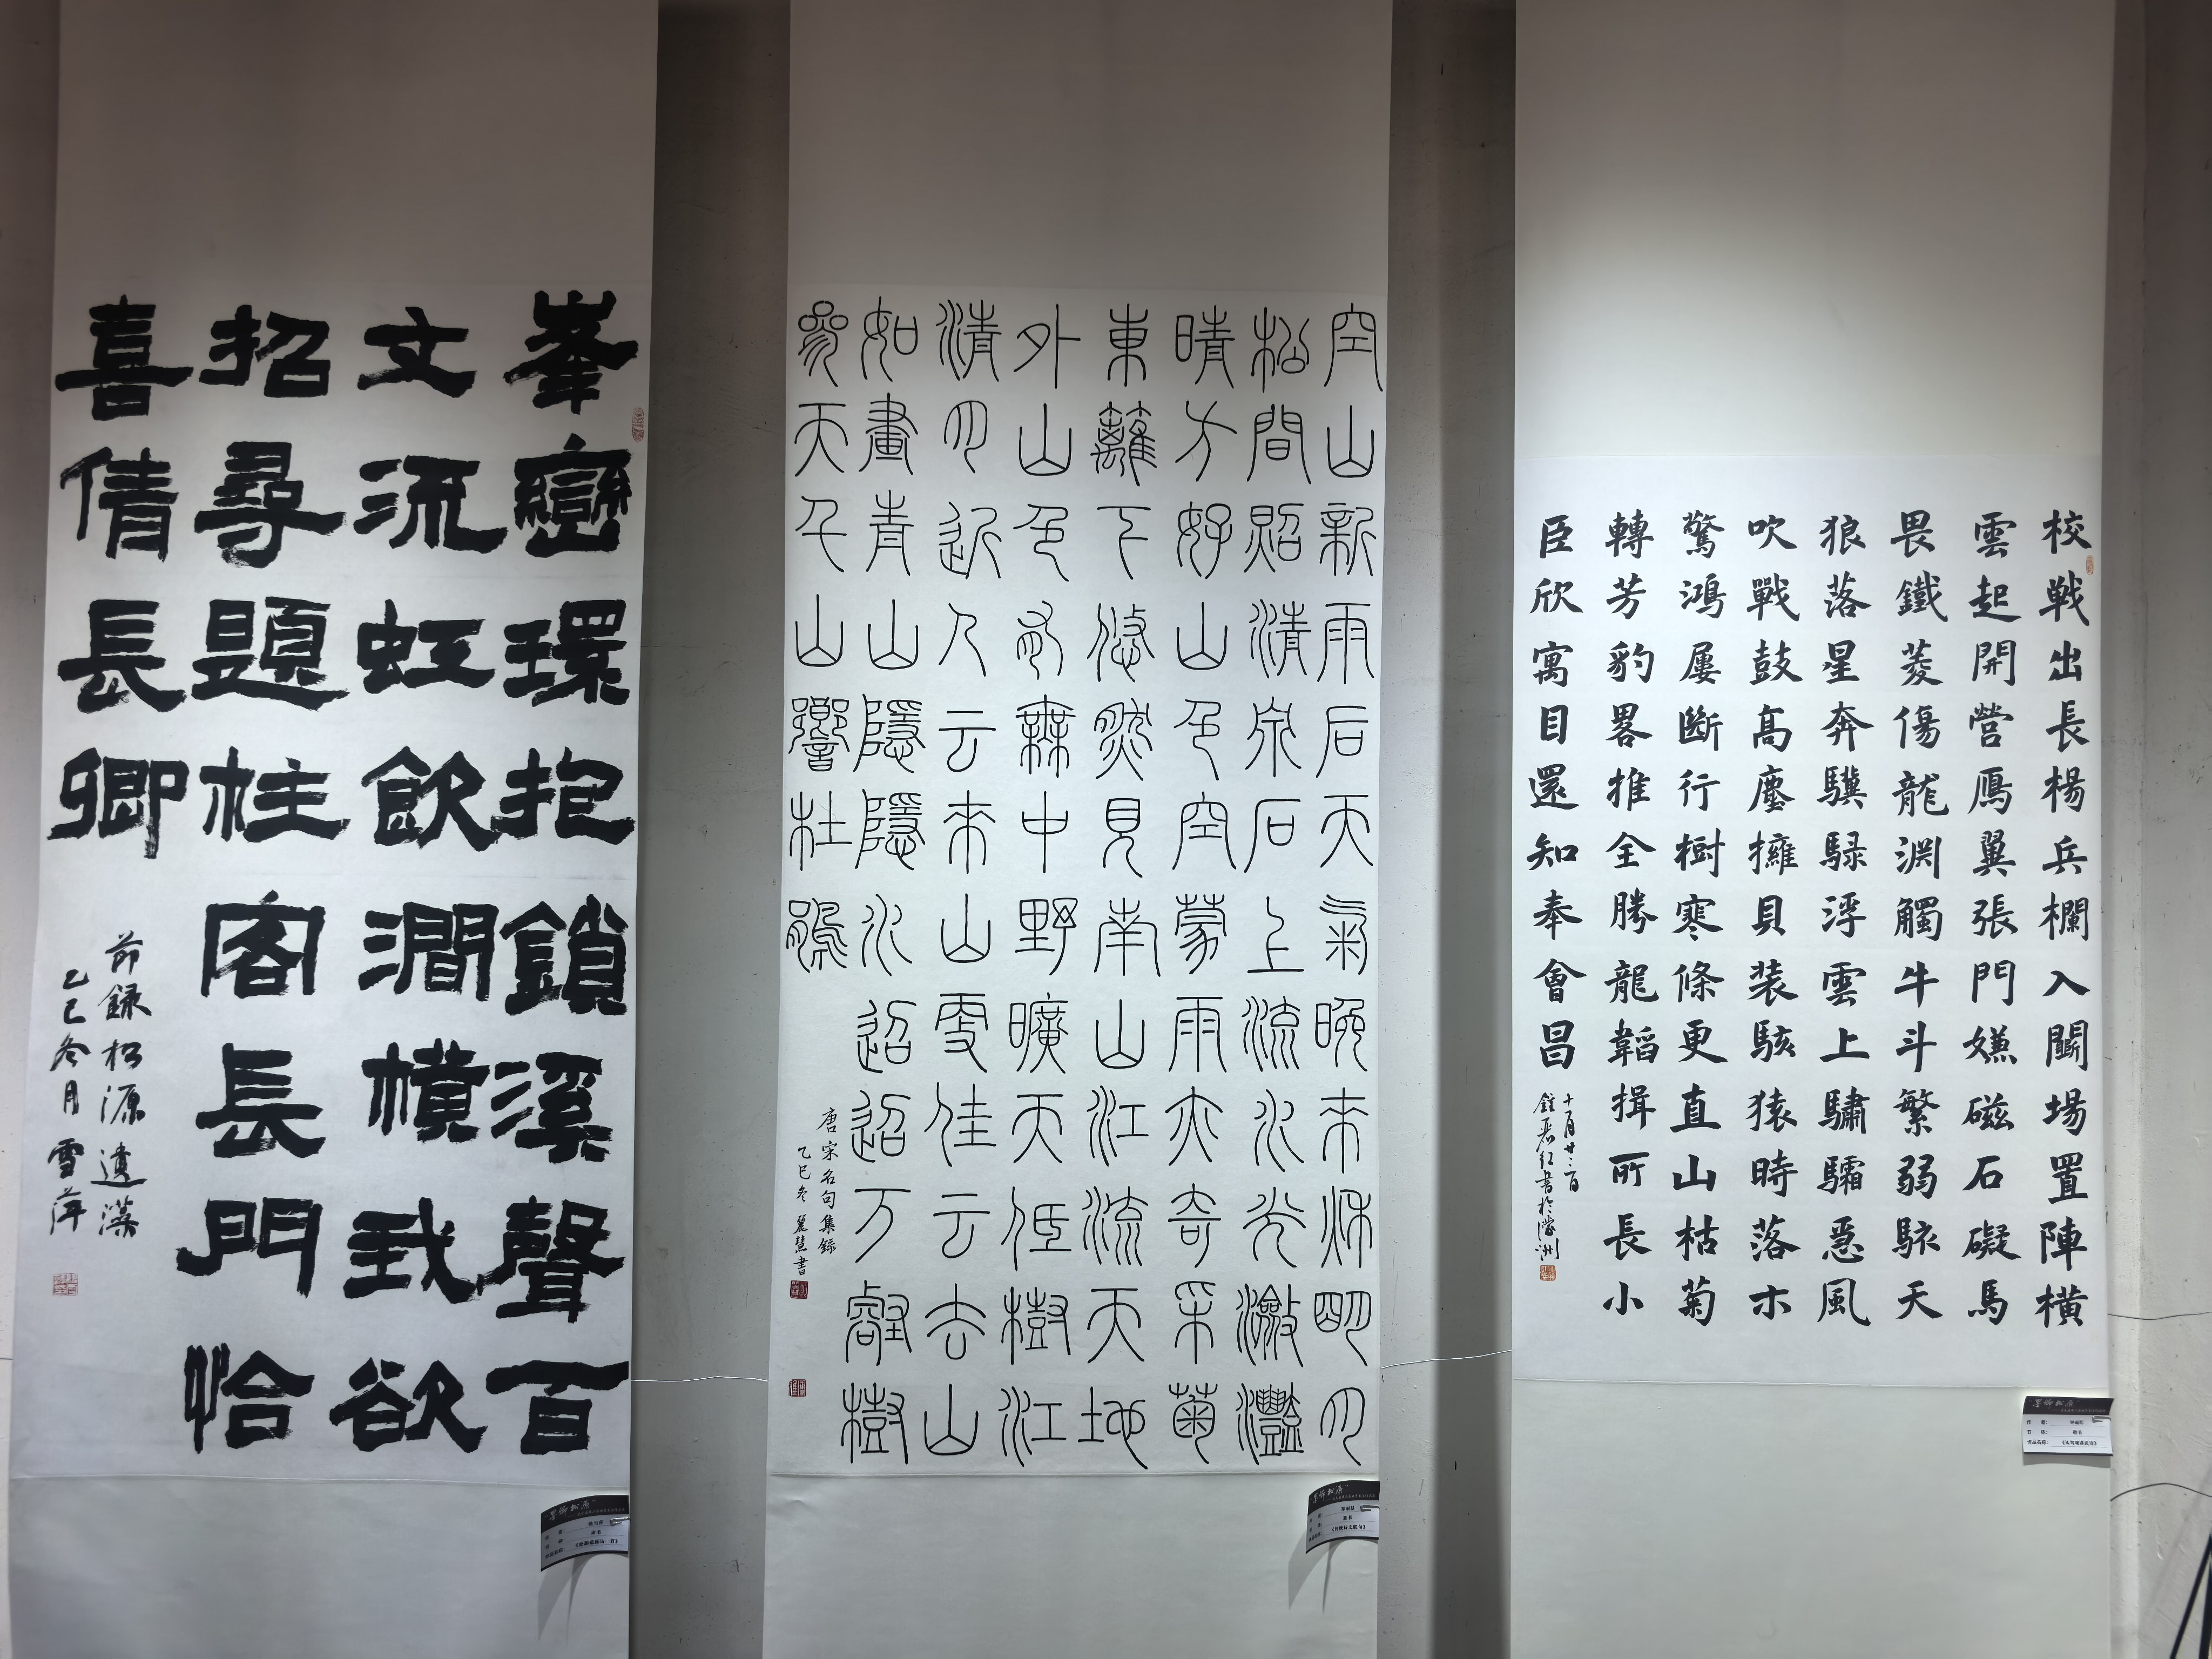 校戦出長楊兵欄入闢場置陣橫
雲起開營鴈翼張門嫌磁石礙馬
畏鐵菱傷龍淵觸牛斗繁弱駭天
狼落星奔驥騄浮雲上驌驦惡風
吹戰鼓高塵擁貝装駭猿時落木
驚鴻屢斷行樹寒條更直山枯菊
轉芳豹畧推全勝龍韜揖所長小
臣欣寓目還知奉會昌
空山新雨后天氣晚來秋明月
松間照清泉石上流水光瀲灩
晴方好山色空蒙雨亦奇采菊
東籬下悠然見南山江流天地
外山色有無中野曠天低樹江
清月近人云來山更佳云去山
如畫青山隱隱水迢迢万壑樹
參天千山響杜鵑
唐宋名句集錄
乙巳冬麗慧書
峯巒環抱鎖溪聲百
文流虹飲澗橫我欲
招尋題柱客長門恰
喜倩長卿
前録松源遺藻
乙巳冬月雪萍